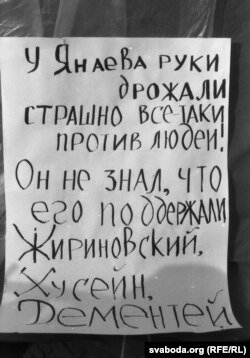 У Янаева руки
дрожали
страшно все-таки
против людей!
Он не знал, что
его поддержали
Жириновский,
Хусейн,
Дементей
svaboda.org (RFE/RL)